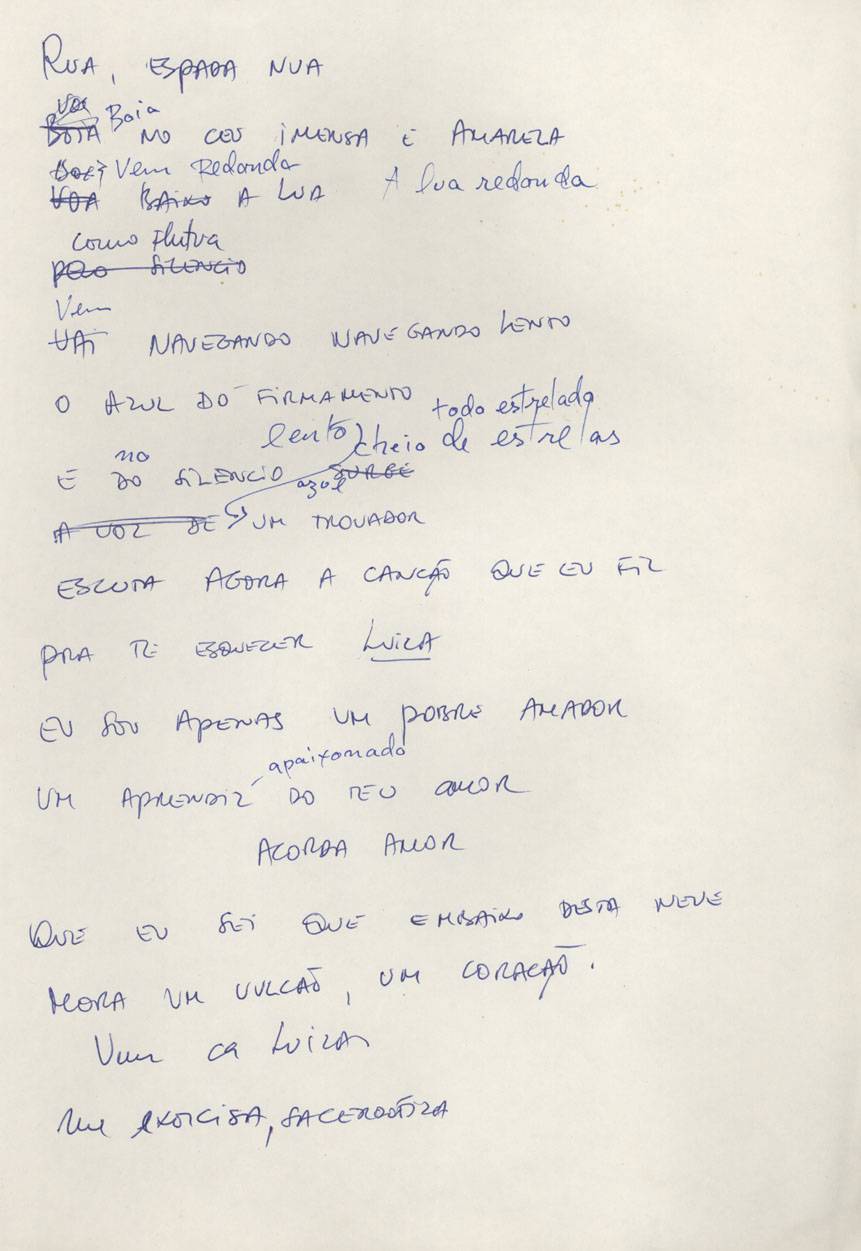 RUA, ESPADA NUA
VOA Boia
BOIA NO CEU IMENSA E AMARELA
Vem Redonda
VOA BAIXO A LUA A lua redonda
como Flutua
PELO SILENCIO
Vem
VAI NAVEGANDO NAVEGANDO LENTO
O AZUL DO FIRMAMENTO todo estrelado
lento cheio de estrelas
no
E DO SILENCIO SURGE
azul
A VOZ DE UM TROVADOR
ESCUTA AGORA A CANÇÃO QUE EU FIZ
PRA TE ESQUECER LUIZA
EU SOU APENAS UM POBRE AMADOR
apaixonado
UM APRENDIZ DO TEU AMOR
ACORDA AMOR
QUE EU SEI QUE EMBAIXO DESTA NEVE
MORA UM VULCÃO, UM CORAÇÃO.
Vem ca LUIZA
Me EXORCISA, SACERDOTIZA